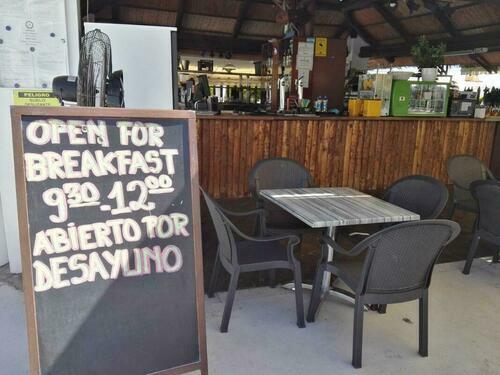 OPEN FOR
BREAKFAST
9:30 - 12:00
ABIERTO POR
DESAYUNO
PELIGRO